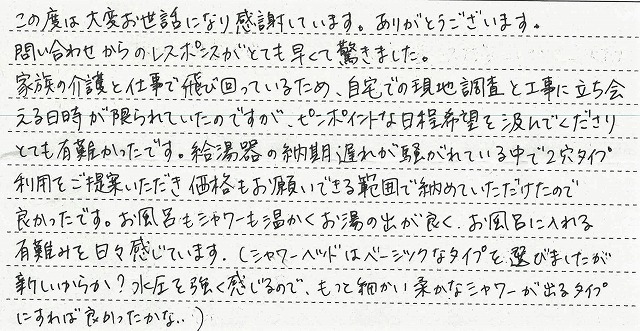 この度は大変お世話になり感謝しています。ありがとうございます。
問い合わせからのレスポンスがとても早くて驚きました。
家族の介護と仕事で飛び回っているため、自宅での現地調査と工事に立ち会
える日時が限られていたのですが、ピンポイントな日程希望を汲んでくださり
とても有難かったです。給湯器の納期遅れが騒がれている中で2穴タイプ
利用をご提案いただき価格もお願いできる範囲で納めていただけたので
良かったです。お風呂もシャワーも温かくお湯の出が良く、お風呂に入れる
有難みを日々感じています。(シャワーヘッドはベーシックなタイプを選びましたが
新しいからか?水圧を強く感じるので、もっと細かい柔かなシャワーが出るタイプ
にすれば良かったかな..)